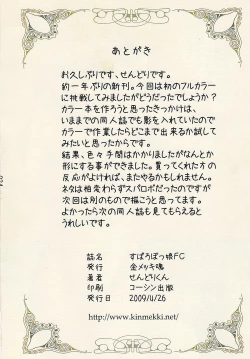 あとがき
お久しぶりです、せんどりです。
約一年ぶりの新刊。今回は初のフルカラー
に挑戦してみましたがどうだったでしょうか？
カラー本を作ろうと思ったきっかけは、
いままでの同人誌でも影を入れていたので
カラーで作業したらどこまで出来るか試して
みたいと思ったからです。
結果、色々手間はかかりましたがなんとか
形にする事ができました。買ってくれた方の
反応がよければ、またやるかもしれません。
ネタは相変わらずスパロボだったのですが
次回は別のもので描こうと思ってます。
よかったら次の同人誌も見てもらえると
うれしいです。
誌名 すぱろぼっ娘FC
発行 金メッキ魂
著者 せんどりくん
印刷 コーシン出版
発行日 2009/11/26
http://www.kinmekki.net/